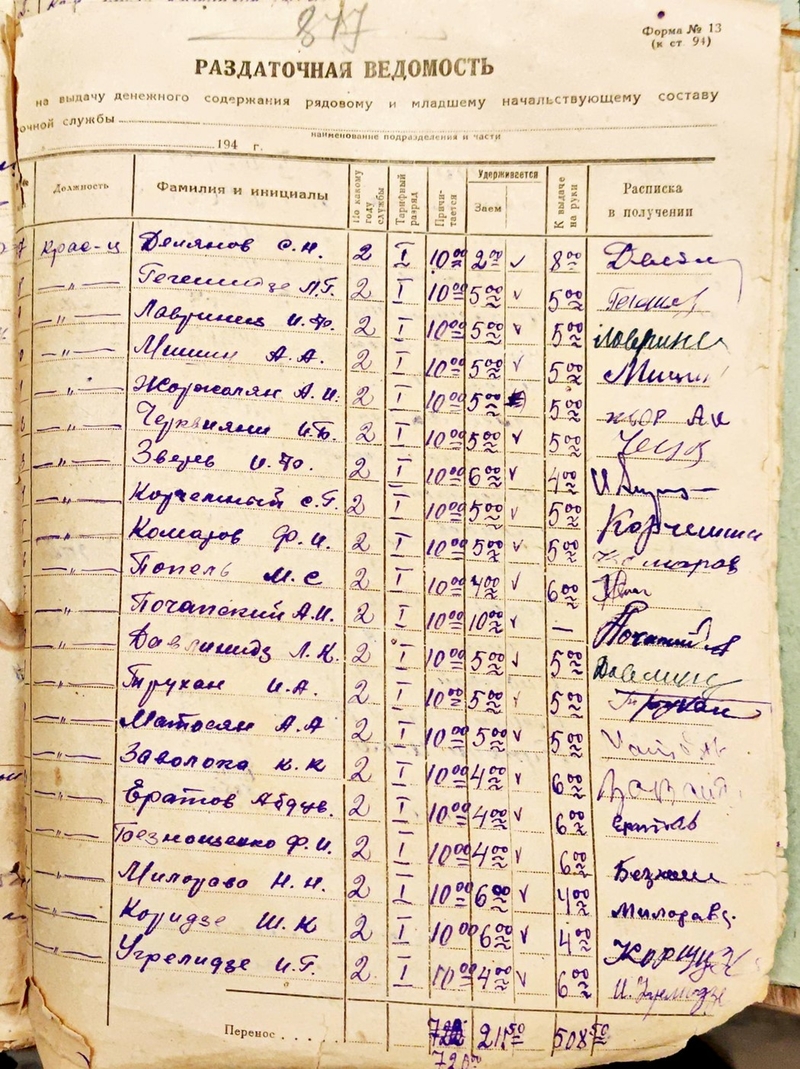 877
Форма № 13
(к ст. 94)
РАЗДАТОЧНАЯ ВЕДОМОСТЬ
на выдачу денежного содержания рядовому и младшему начальствующему составу
очной службы
наименование подразделения и части
194 г.
Должность Фамилия и инициалы По какому году службы Тарифный разряд Причитается Удерживается Заем К выдаче на руки Расписка в получении
Крас-ц Делянов С.Н. 2 I 10 00 2 00 ✓ 8 00
—"— Гегешидзе Л.Г. 2 I 10 00 5 00 ✓ 5 00
—"— Лавринец И.Ф. 2 I 10 00 5 00 ✓ 5 00 Лавринец
—"— Мишин А.А. 2 I 10 00 5 00 ✓ 5 00 Мишин
—"— Жоржолян А.И. 2 I 10 00 5 00 5 00 жор А И
—"— И.Ф. 2 I 10 00 5 00 ✓ 5 00
—"— Зверь И.Ф. 2 I 10 00 6 00 ✓ 4 00
—"— Корчемный С.Г. 2 I 10 00 5 00 ✓ 5 00
—"— Комаров Ф.И. 2 I 10 00 5 00 ✓ 5 00 Комаров
—"— Попель М.С 2 I 10 00 4 00 ✓ 6 00
—"— Почапский А.И. 2 I 10 00 10 00 ✓ —
—"— Л.К. 2 I 10 00 5 00 ✓ 5 00
—"— Трухан И.А. 2 I 10 00 5 00 ✓ 5 00 Трухан
—"— Матосян А.А 2 I 10 00 5 00 ✓ 5 00
—"— Заволока К.К 2 I 10 00 4 00 ✓ 6 00
—"— Ератов Абдув. 2 I 10 00 4 00 ✓ 6 00
—"— Безнощенко Ф.И. 2 I 10 00 4 00 ✓ 6 00
—"— Милораво Н.Н. 2 I 10 00 6 00 ✓ 4 00 Милоравд.
—"— Коридзе Ш.К 2 I 10 00 6 00 ✓ 4 00
—"— Угрелидзе И.Г. 2 I 10 00 4 00 ✓ 6 00
Перенос . . . . 211 50 508 50
720 00